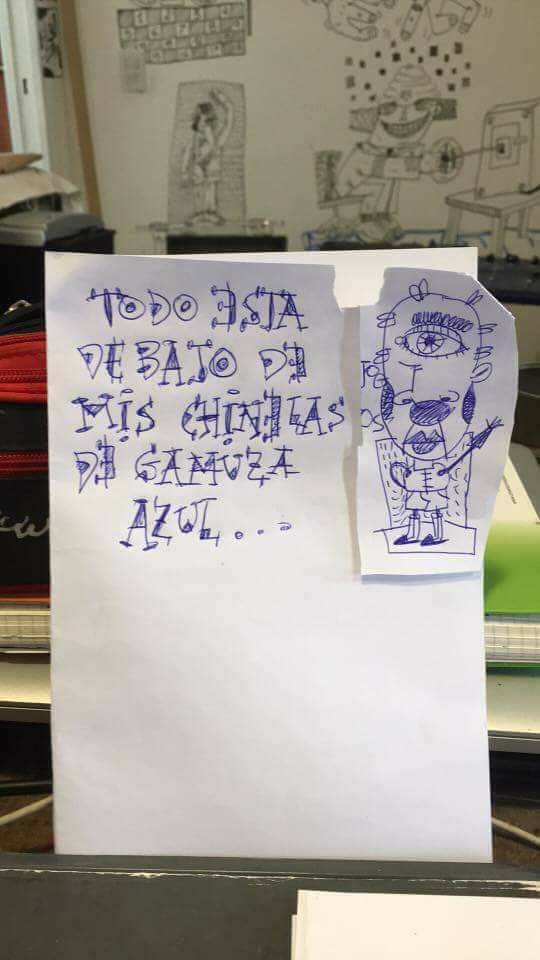 TODO ESTA
DEBAJO DE
MIS CHINELAS
DE GAMUZA
AZUL...
JO
OS